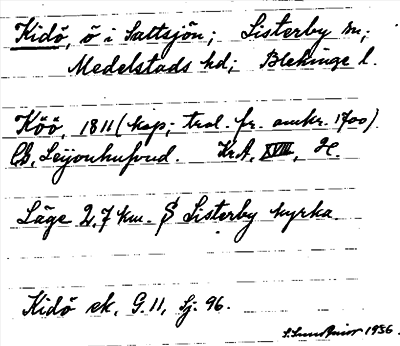 Kidö, ö i Saltsjön; Listerby sn;
Medelstads hd; Blekinge l.
Köö, 1811 (kop; trol. fr. omkr. 1700).
CG, Leijonhufvud. KrA, XVIII, H.
Läge 2,7 km. S Listerby kyrka.
Kidö ek, G. 11, Sj. 96.
1936.